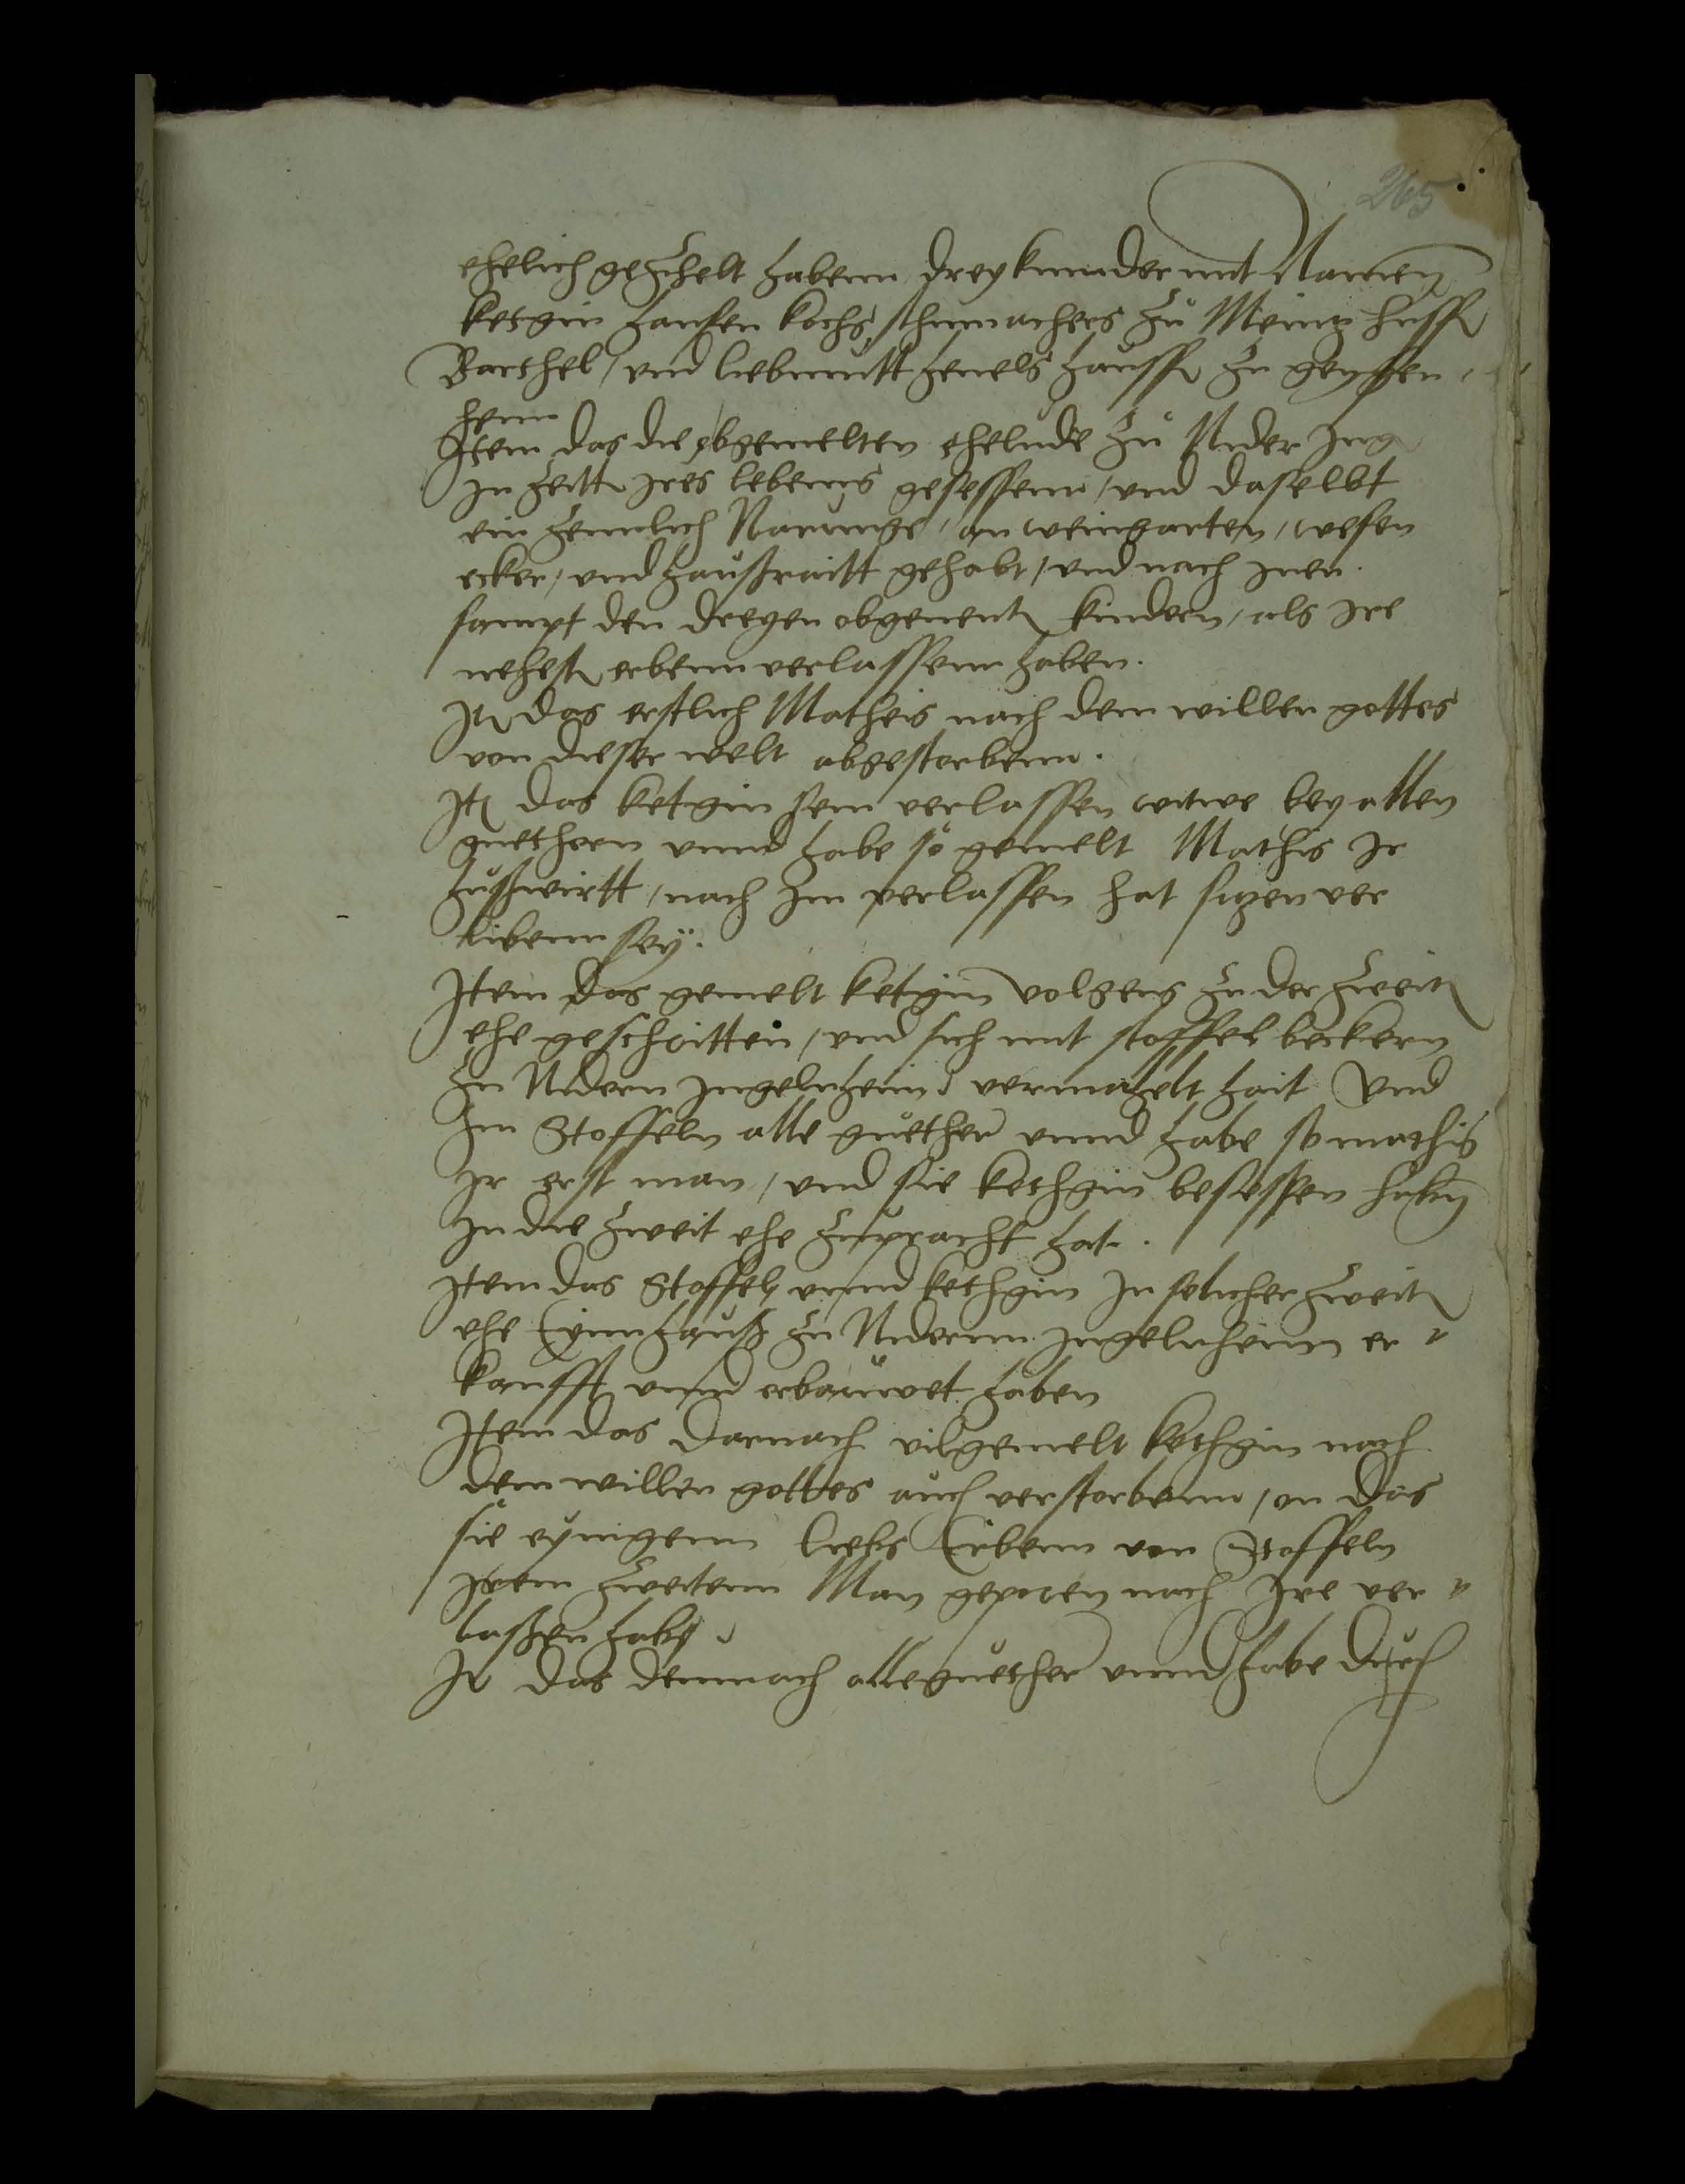 265
ehelich gezihelt habenn drey kinnder mit Namen
ketgin hansen kochs schumachers zu Meintz husf
Barthel / vnd liebmutt henels haussf zu geyssen
hem
Item das die obgemelten ehelude zu Nider Ing
In zeitt ires lebenns gesessenn / vnd daselbt
ein zemlich Narunge / an weingarten / wesen
ecker / vnd haußraitt gehabt / vnd nach inen
sampt den dreyen obgenent kindern / als ire
nehest erbenn verlassenn haben.
It das erstlich Matheis nach dem willen gottes
von dieser welt abgestorbenn.
It das ketgin sein verlassen witwe bey allen
guethern vnnd habe so gemelt Mathis Ir
hußwirtt / nach im verlassen hat sitzen ver
libenn sey.
Item das gemelt ketgin volgens zu der zweit
ehe geschritten / vnd sich mit stoffel beckern
zu Nidern Ingelnheim vermahelt hait Vnd
Im Stoffeln alle guether vnnd habe so mathis
Ir erst man / vnd sie kethgin besessen haben
In die zweit ehe zupracht hat.
Item das Stoffel vnnd kethgin In solicher zweit
ehe Eynn hauß zu Nidernn Ingelnheim er
kaufft vnnd erbauwet haben
Item das darnach vilgemelt kethgin nach
dem willen gottes auch verstorbenn / on das
sie eynigenn liebs Erbenn von Stoffeln
Irem zweitenn Man geporen nach Ire ver
lassen habe
It das demnach alle guether vnnd habe durch